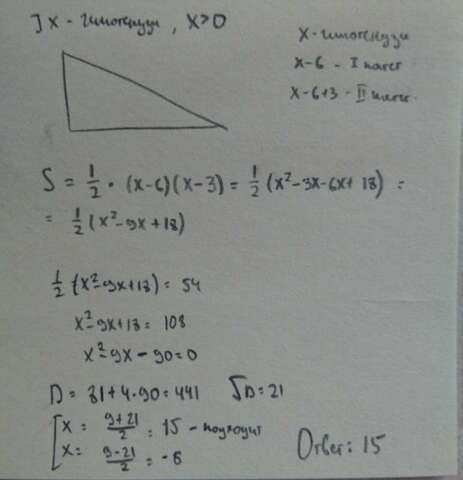 ] x - гипотенузы, x>0
x - гипотенузы
x-6 - I катет
x-6+3 - II катет.
S = 1/2 · (x-6)(x-3) = 1/2 (x²-3x-6x+18) =
= 1/2 (x²-9x+18)
1/2 (x²-9x+18) = 54
x²-9x+18 = 108
x²-9x-90=0
D = 81+4·90=441 √D=21
[ x = (9+21)/2 = 15 - подходит
x = (9-21)/2 = -6
Ответ: 15